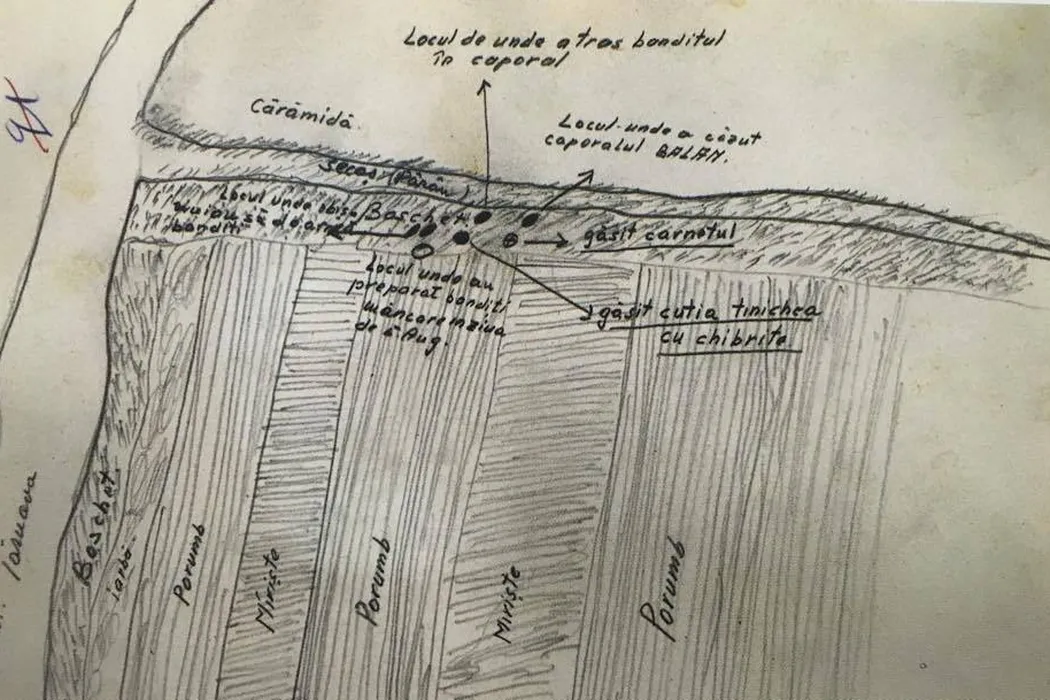 Locul de unde a tras banditul
în caporal
Cărămidă
Locul unde a căzut
caporalul BALAN.
secaș (Părău)
Locul unde
Boschet
bandiți
găsit carnetul
Locul unde au
preparat bandiți
mâncare in ziua
de 5 Aug.
găsit cutia tinichea
cu chibrite
Boschet
iarbă
Porumb
Miriște
Porumb
Miriște
Porumb